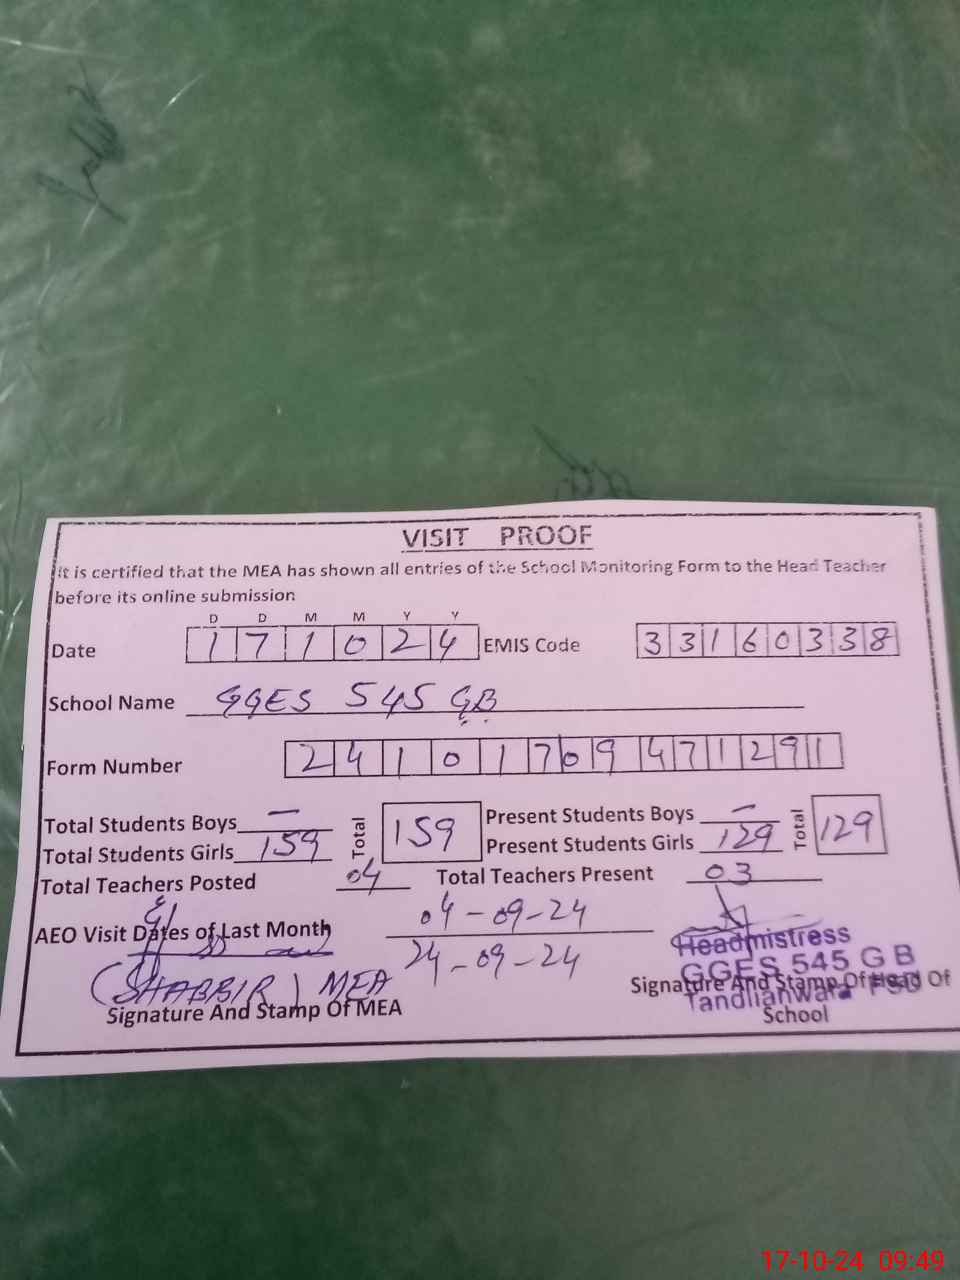 VISIT PROOF
It is certified that the MEA has shown all entries of the School Monitoring Form to the Head Teacher
before its online submission
D D M M Y Y
Date 1 7 1 0 2 4 EMIS Code 3 3 1 6 0 3 3 8
School Name GGES 545 GB
Form Number 2 4 1 0 1 7 0 9 4 7 1 2 9 1
Total Students Boys — Total 159 Present Students Boys — Total 129
Total Students Girls 159 Present Students Girls 129
Total Teachers Posted 04 Total Teachers Present 03
AEO Visit Dates of Last Month 04-09-24
24-09-24
(SHABBIR) MEA
Signature And Stamp Of MEA
Headmistress
GGES 545 G B
Tandlianwala FSD
Signature And Stamp Of Head Of
School
17-10-24 09:49